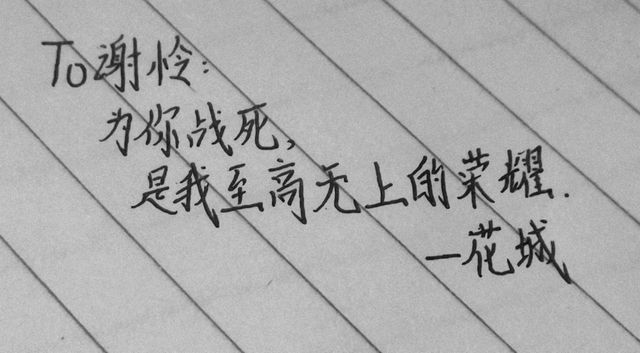 To谢怜:
为你战死,
是我至高无上的荣耀.
—花城